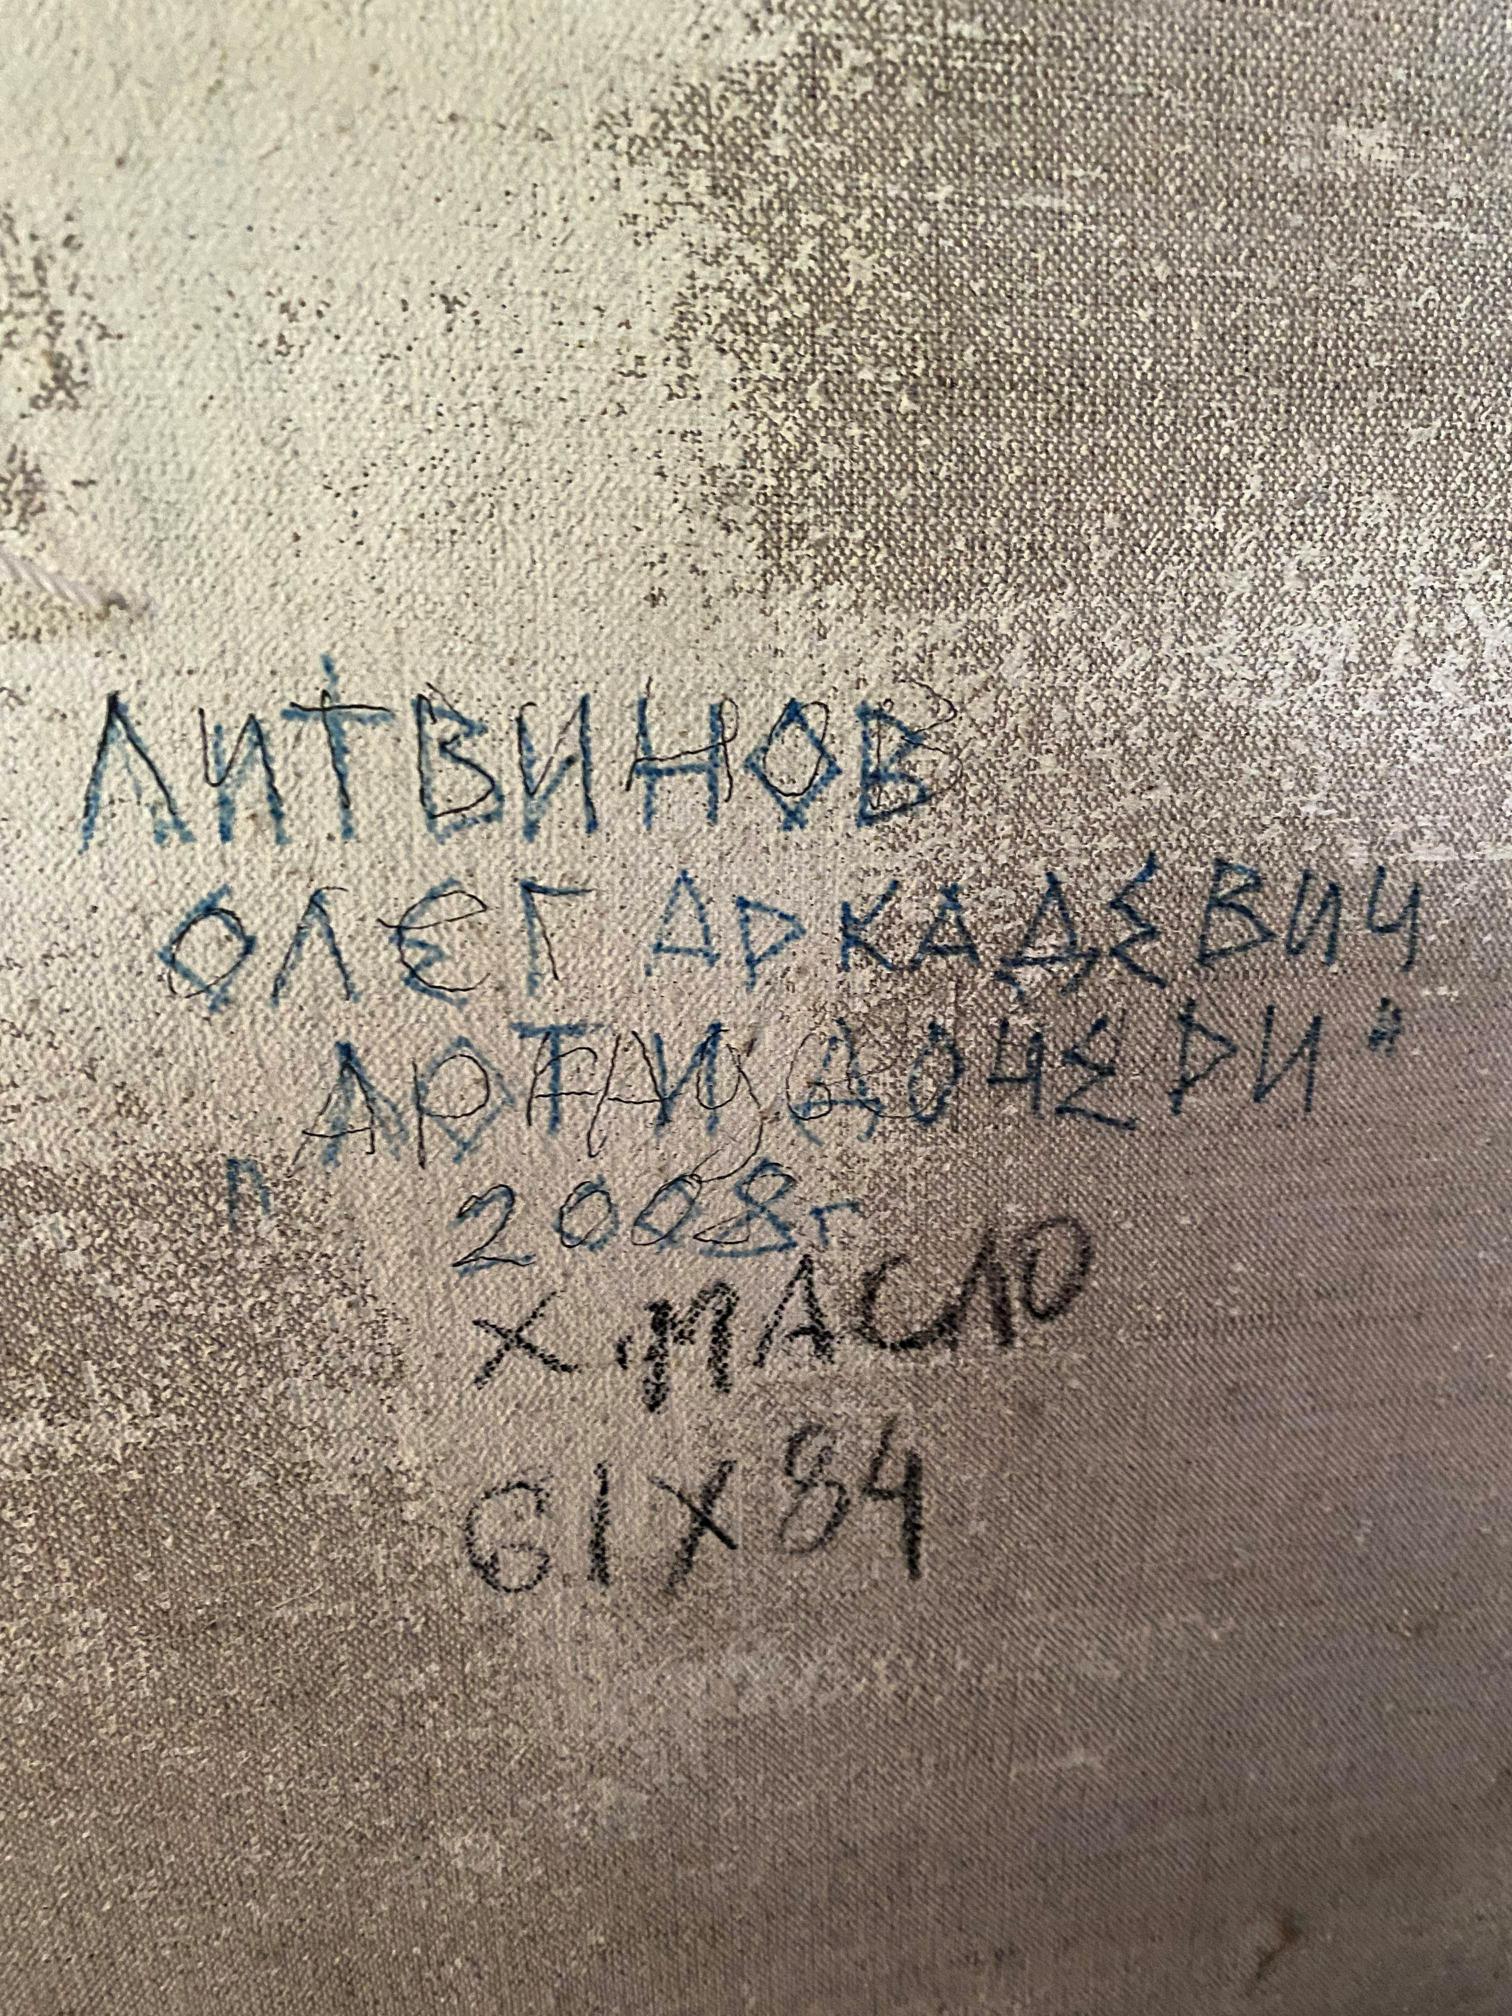 ЛИТВИНОВ
ОЛЕГ АРКАДЕВИЧ
"ЛОТ И ДОЧЕРИ"
2008г
Х.МАСЛО
61Х84